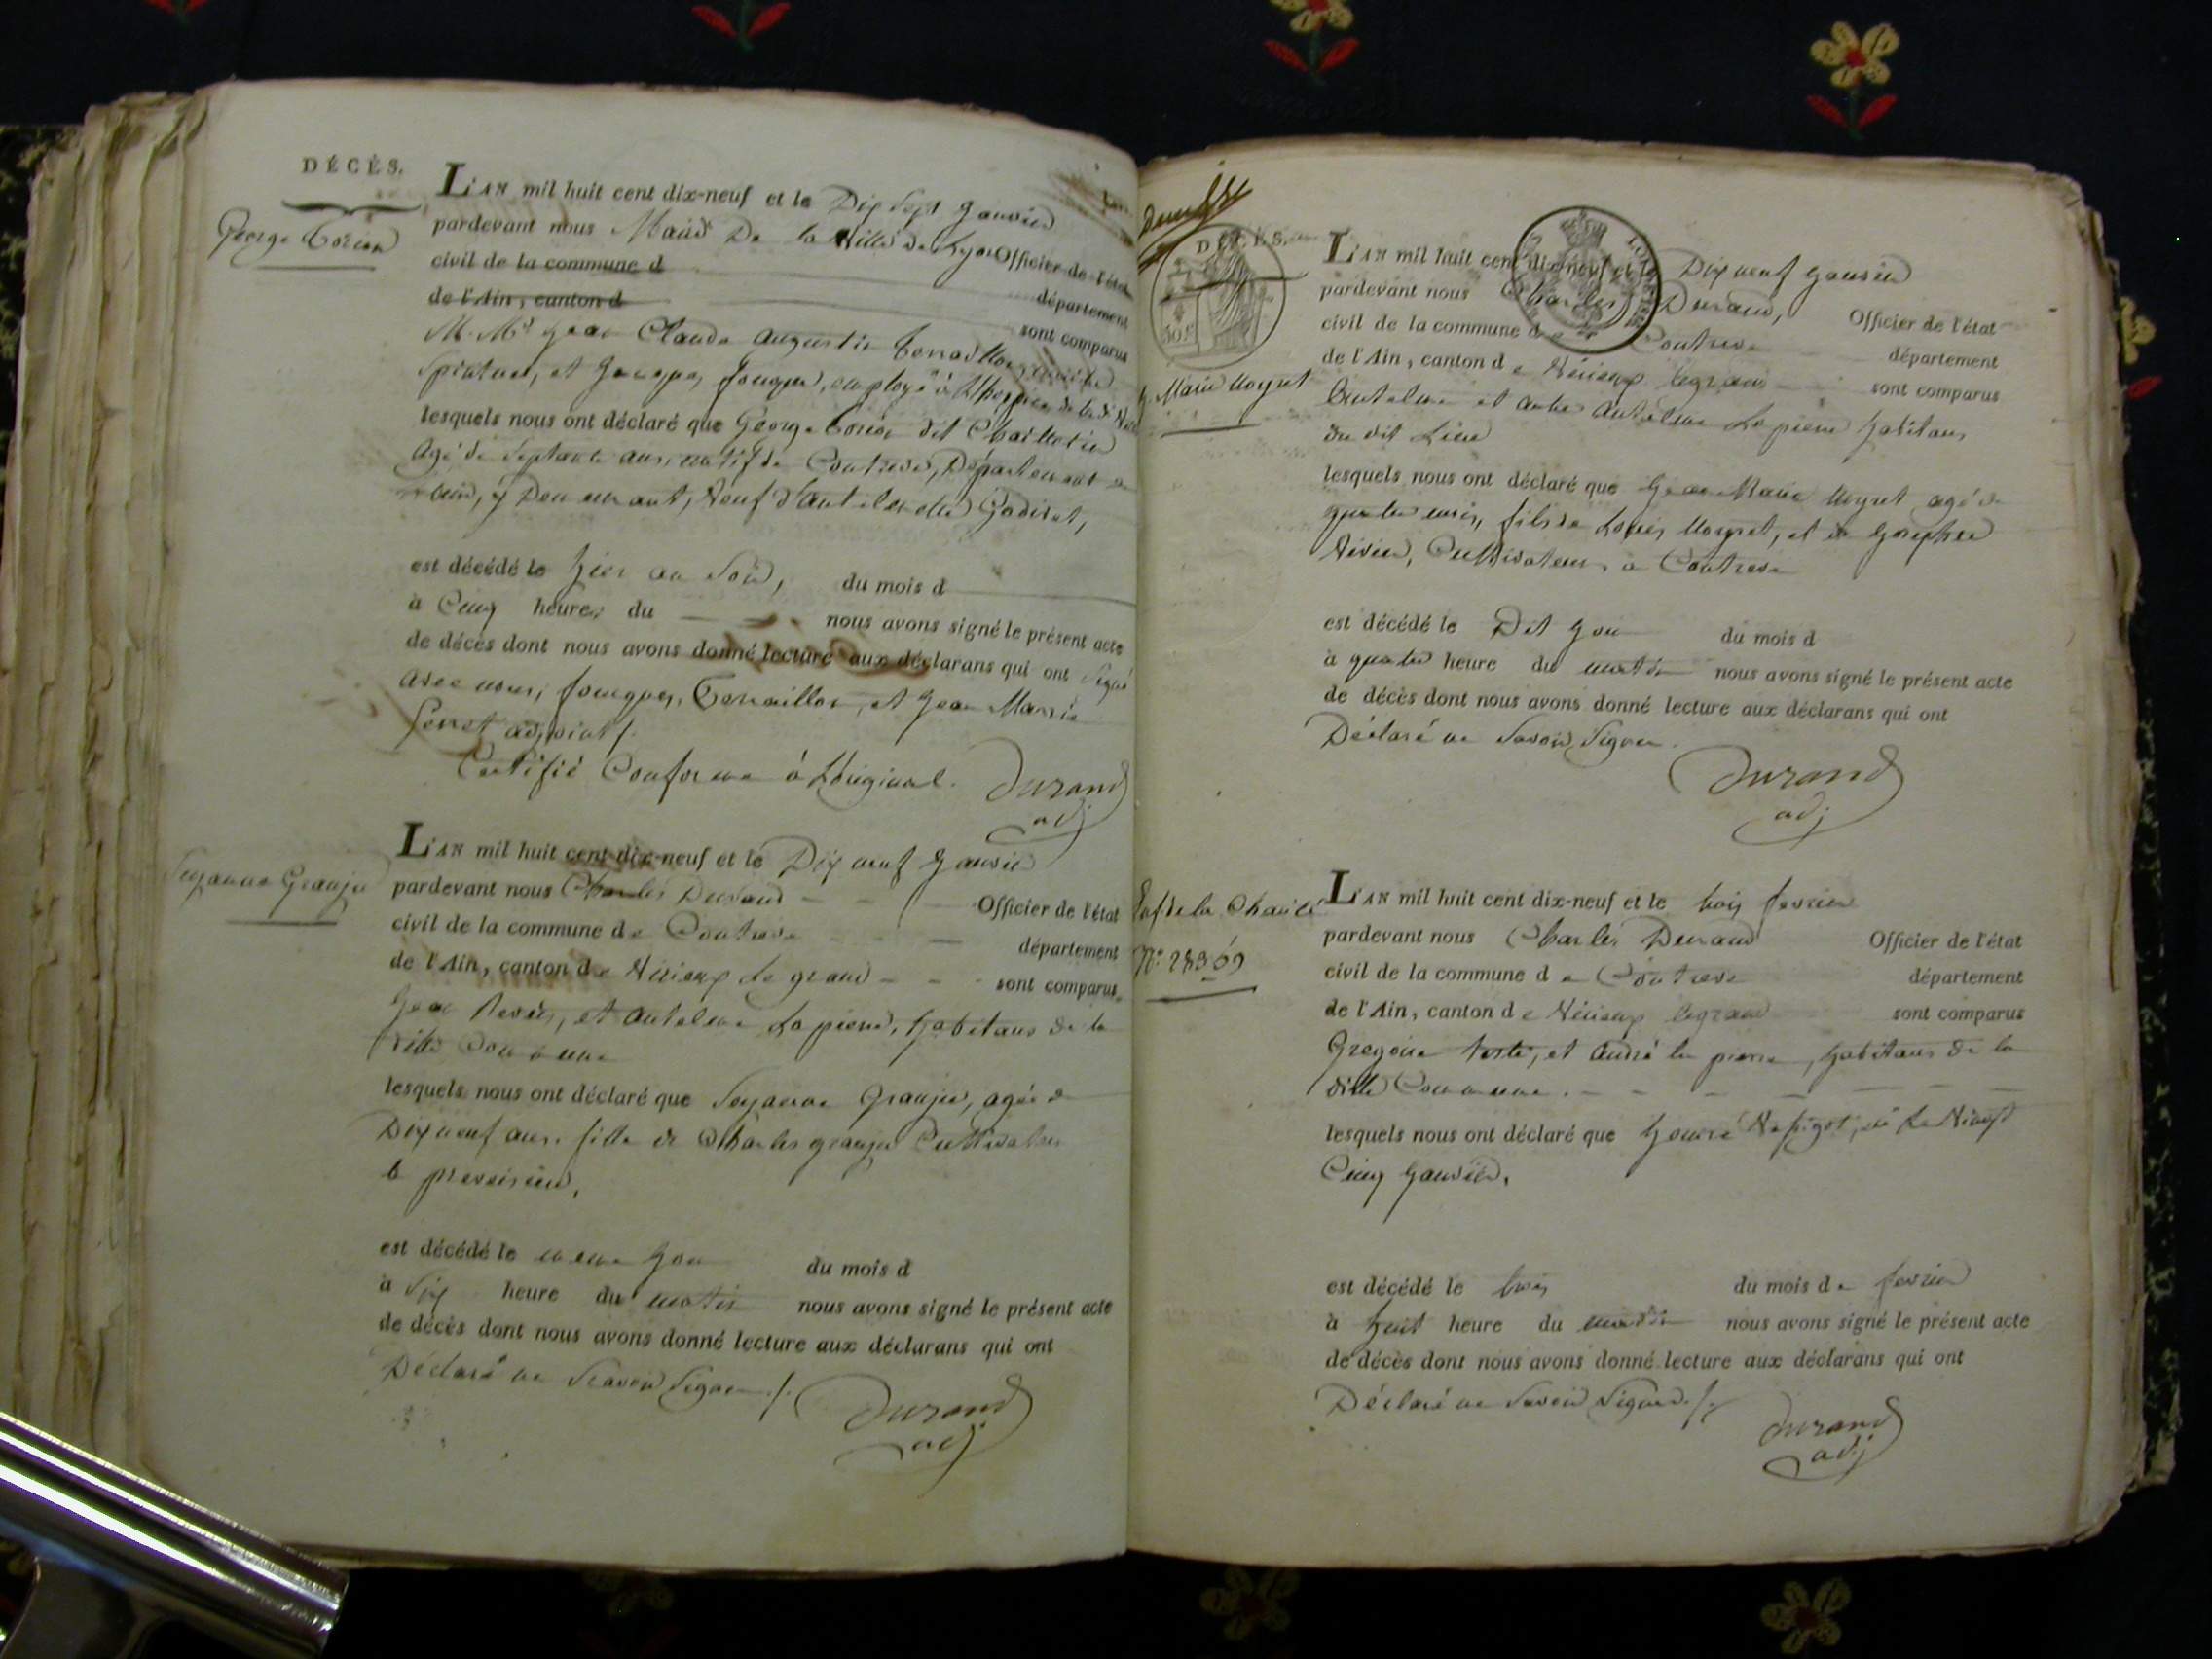 DÉCÈS.
George
L'AN mil huit cent dix-neuf et le Dix Sept Janvier
pardevant nous Maire De la Ville de Lyon Officier de l'état
civil de la commune d
département
de l'Ain, canton d
sont comparus
M. Mrs Jean Claude Augustin
et Jacques fouques, employé à
lesquels nous ont déclaré que George dit
Agé de Septante ans, natif de Contrevoz, Département de
l'ain, y Demeurant, Veuf d'antelmette Godivet,
est décédé le hier au Soir, du mois d
à Cinq heures du nous avons signé le présent acte
de décès dont nous avons donné lecture aux déclarans qui ont Signé
avec nous, fouques, Terraillon, et Jean Marie
adjoint /.
Certifié Conforme à L'original. Durand
adj
Suzanne Granju
L'AN mil huit cent dix-neuf et le Dix neuf Janvier
pardevant nous Charles Durand Officier de l'état
civil de la commune de Contrevoz
département
de l'Ain, canton de Virieux le grand sont comparus
Jean et Antelme Lapierre, habitans de la
ditte Commune
lesquels nous ont déclaré que Suzanne Granju, agée de
Dix neuf ans, fille de Charles granju Cultivateur
à
est décédé le meme Jour du mois d
à Six heure du matin nous avons signé le présent acte
de décès dont nous avons donné lecture aux déclarans qui ont
Déclaré ne Scavoir Signer ./. Durand
adj
DÉCÈS.
50 c
J. Marie Moyret
L'AN mil huit cent dix-neuf et le Dix neuf Janvier
pardevant nous Charles Durand, Officier de l'état
civil de la commune de Contrevoz département
de l'Ain, canton de Virieux legrand sont comparus
Antelme et autre Antelme Lapierre habitans
du dit Lieu
lesquels nous ont déclaré que Jean Marie Moyret agé de
quatre mois, fils de Louis Moyret, et de Josephte
Cultivateurs à Contrevoz
est décédé le Dit Jour du mois d
à quatre heure du matin nous avons signé le présent acte
de décès dont nous avons donné lecture aux déclarans qui ont
Déclaré ne Savoir Signer.
Durand
adj
Enf. de la Charité
N.° 28309
L'AN mil huit cent dix-neuf et le trois fevrier
pardevant nous Charles Durand Officier de l'état
civil de la commune de Contrevoz département
de l'Ain, canton de Virieux legrand sont comparus
Gregoire et André la pierre, habitans de la
ditte Commune.
lesquels nous ont déclaré que né Le Vingt
Cinq Janvier.
est décédé le trois du mois de fevrier
à huit heure du matin nous avons signé le présent acte
de décès dont nous avons donné lecture aux déclarans qui ont
Déclaré ne Savoir Signer ./. Durand
adj